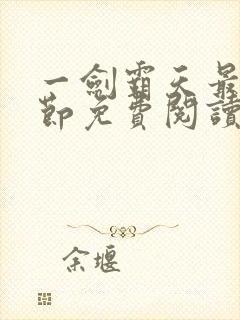 一劍霸天最
節免費閱讀
余堰